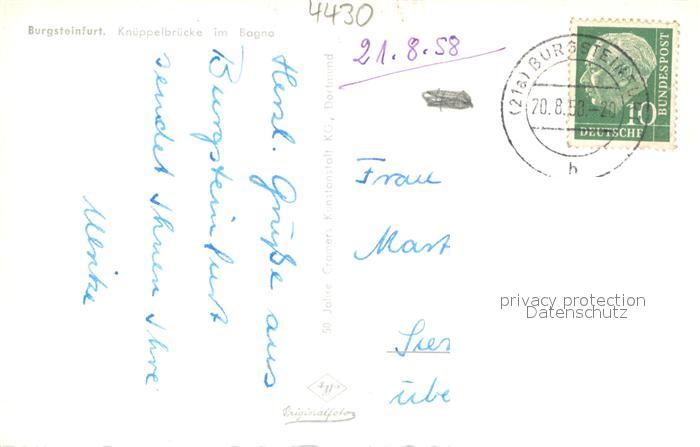 4430
Burgsteinfurt. Knüppelbrücke im Bagno
21.8.58
Herzl. Grüße aus
Burgsteinfurt
sendet Ihnen Ihre
Ulrike
50 Jahre Cramers Kunstanstalt KG, Dortmund
Originalfoto
(21a) BURGSTEINFU
20.8.58.-20
b
10
DEUTSCHE
BUNDESPOST
Frau
Mart
privacy protection
Datenschutz
übe